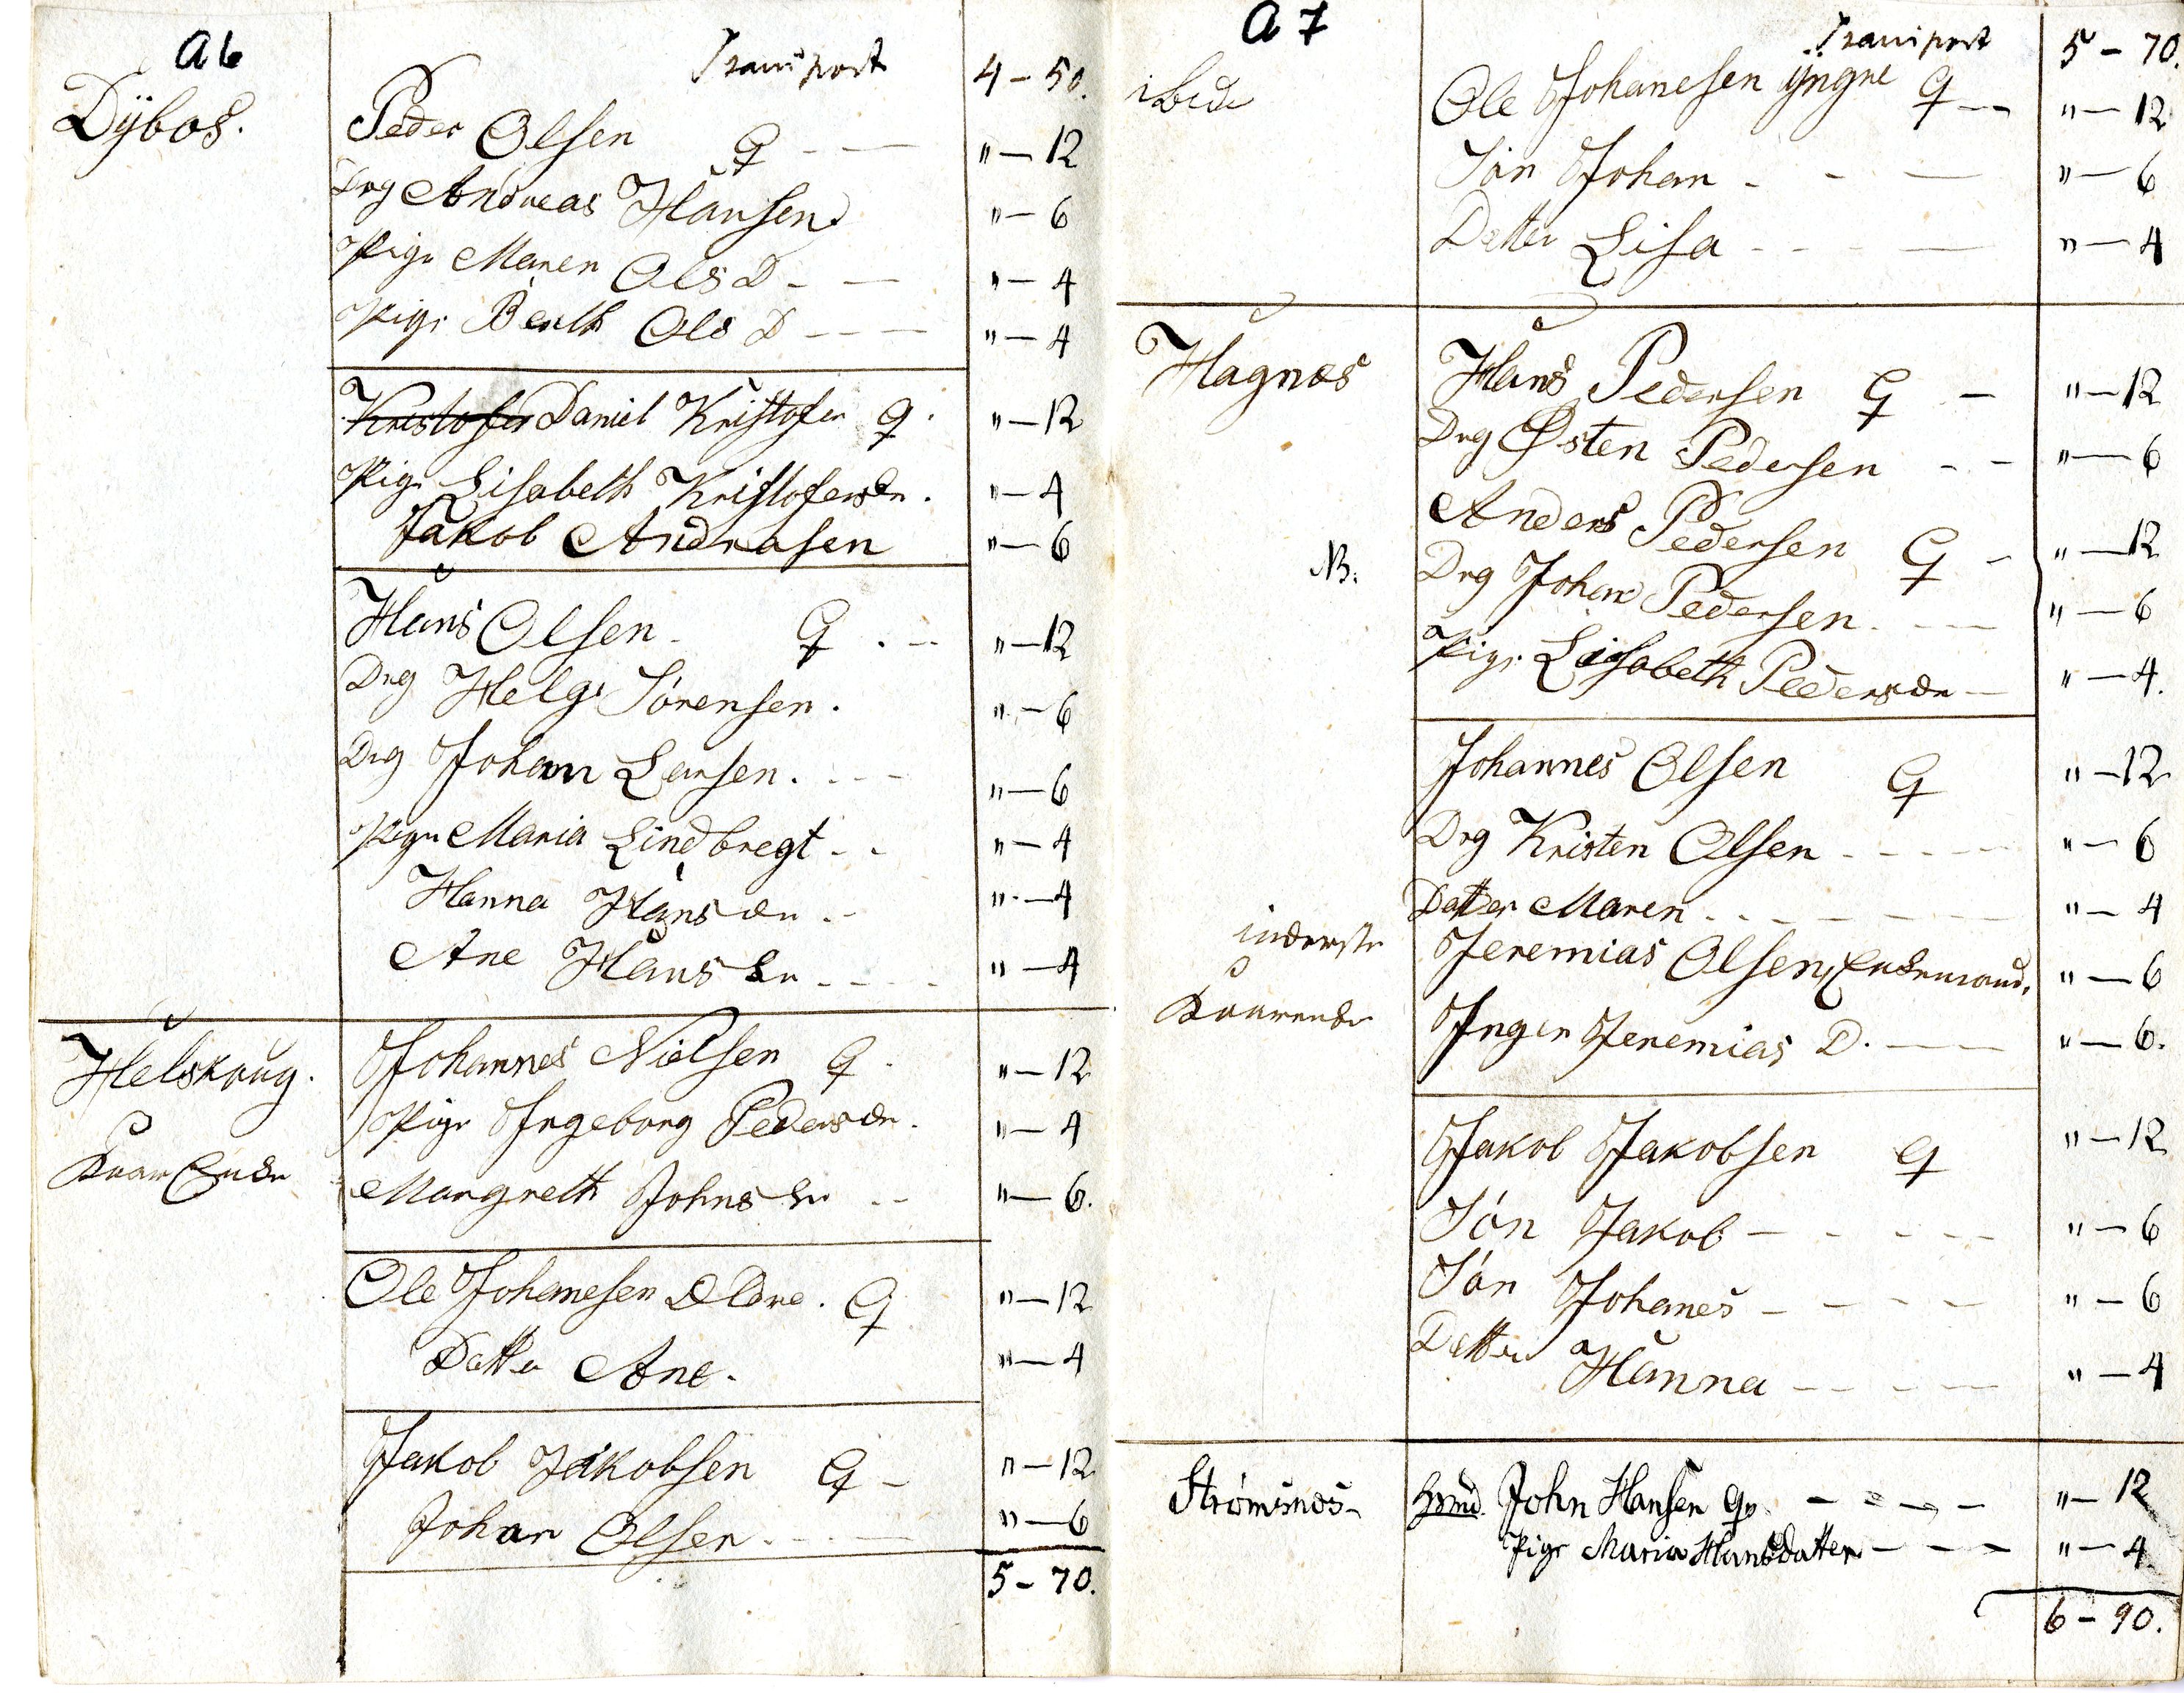 a 6
Transport 4 - 50.
Dÿbos.
Peder Olsen G - — " — 12
Drg Andreas Hansen " — 6
Pige Maren Ols D - — " — 4
Pige Berth Ols D - — — " — 4
Kristofer Daniel Kristofer G. " — 12
Pige Lisabeth Kristofersdr. " — 4
Jakob Andrasen " — 6
Hans Olsen - G. — " — 12
Drg Helge Sörensen. " — 6
Drg Johan Larsen. - — " — 6
Pige Maria Lindbregt - - " — 4
Hanna Hans dr. - " — 4
Ane Hans dr - - - - " — 4
Helskoug. Johannes Nielsen G. " — 12
Pige Ingeborg Pedersdr. " — 4
Margreth Johns dr - - " — 6.
Ole Johanesen Eldre. G " — 12
Datter Ane. " — 4
Jakob Jakobsen G - " — 12
Johan Olsen - - — " — 6
5 - 70.
a 7
Transport 5 - 70.
ibide Ole Johanesen ÿngre G - — " — 12
Sön Johan - - — " — 6
Datter Lisa - - - — " — 4
Hagnæs Hans Pedersen G — " — 12
Drg Østen Pedersen - - " — 6
Anders Pedersen G - " — 12
NB: Drg Johan Pedersen. - — " — 6
Pige Lisabeth Pedersdr — " — 4.
Johannes Olsen G " — 12
Drg Kristen Olsen - - - — " — 6
Datter Maren - - - - — " — 4
inderste Jeremias Olsen, Enkemand. " — 6
Inger Jeremias D. — — " — 6.
Jakob Jakobsen G " — 12
Sön Jakob — - - - " — 6
Sön Johanes - — - — " — 6
Datter Hanna - - - — " — 4
Strömsnæs - John Hansen G - - - - " — 12
Pige Maria Hansdatter - - - " — 4
6 - 90.